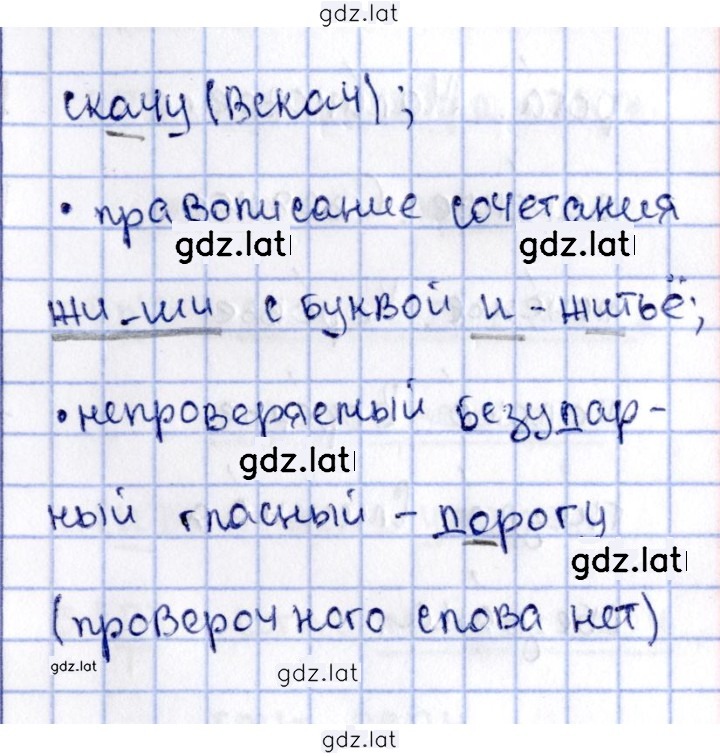 gdz.lat
скачу (вскач);
• правописание сочетания
gdz.lat gdz.lat
жи-ши с буквой и - житьё;
• непроверяемый безудар-
gdz.lat
ный гласный - дорогу
gdz.lat
(проверочного слова нет)
gdz.lat gdz.lat
gdz.lat